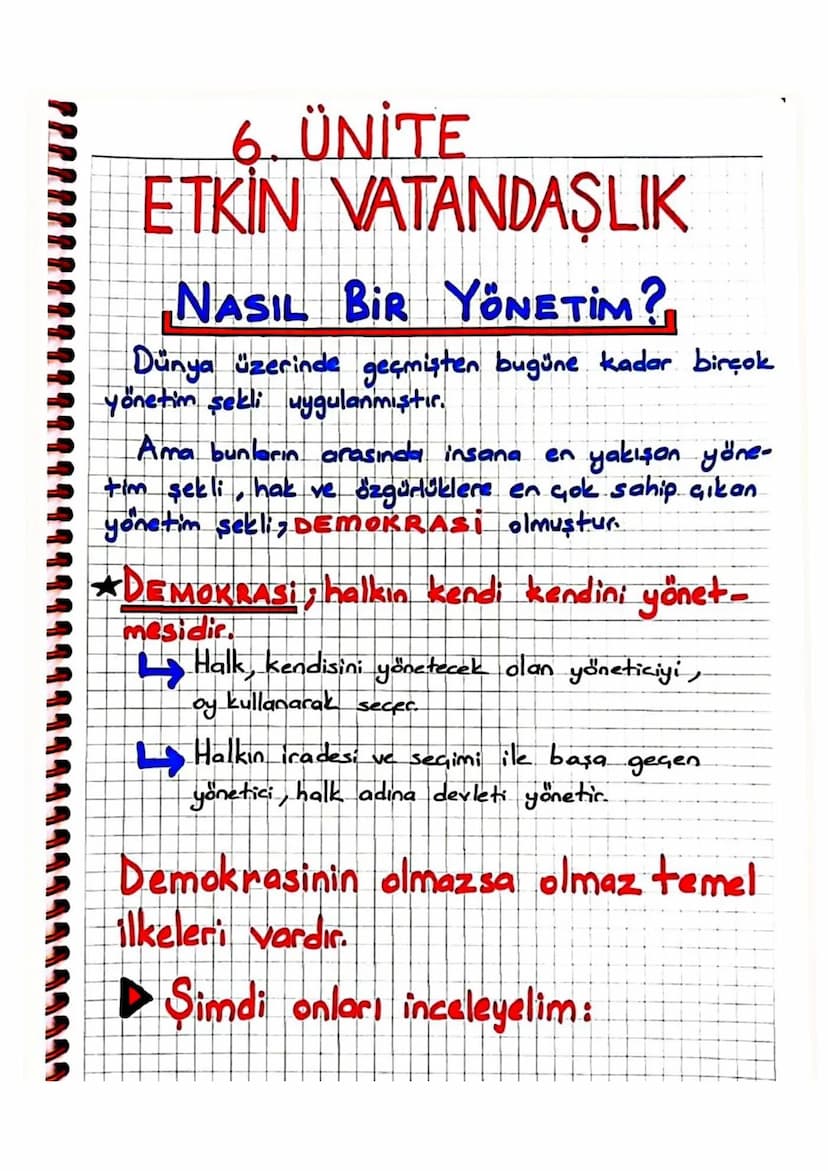 6. ÜNİTE
ETKİN VATANDAŞLIK
NASIL BİR YÖNETİM?
Dünya üzerinde geçmişten bugüne kadar birçok
yönetim şekli uygulanmıştır.
Ama bunların arasında insana en yakışan yöne-
tim şekli, hak ve özgürlüklere en çok sahip çıkan
yönetim şekli; DEMOKRASİ olmuştur.
★DEMOKRASİ; halkın kendi kendini yönet-
mesidir.
↳ Halk, kendisini yönetecek olan yöneticiyi,
oy kullanarak seçer.
↳ Halkın iradesi ve seçimi ile başa geçen
yönetici, halk adına devleti yönetir.
Demokrasinin olmazsa olmaz temel
ilkeleri vardır.
▶ Şimdi onları inceleyelim: